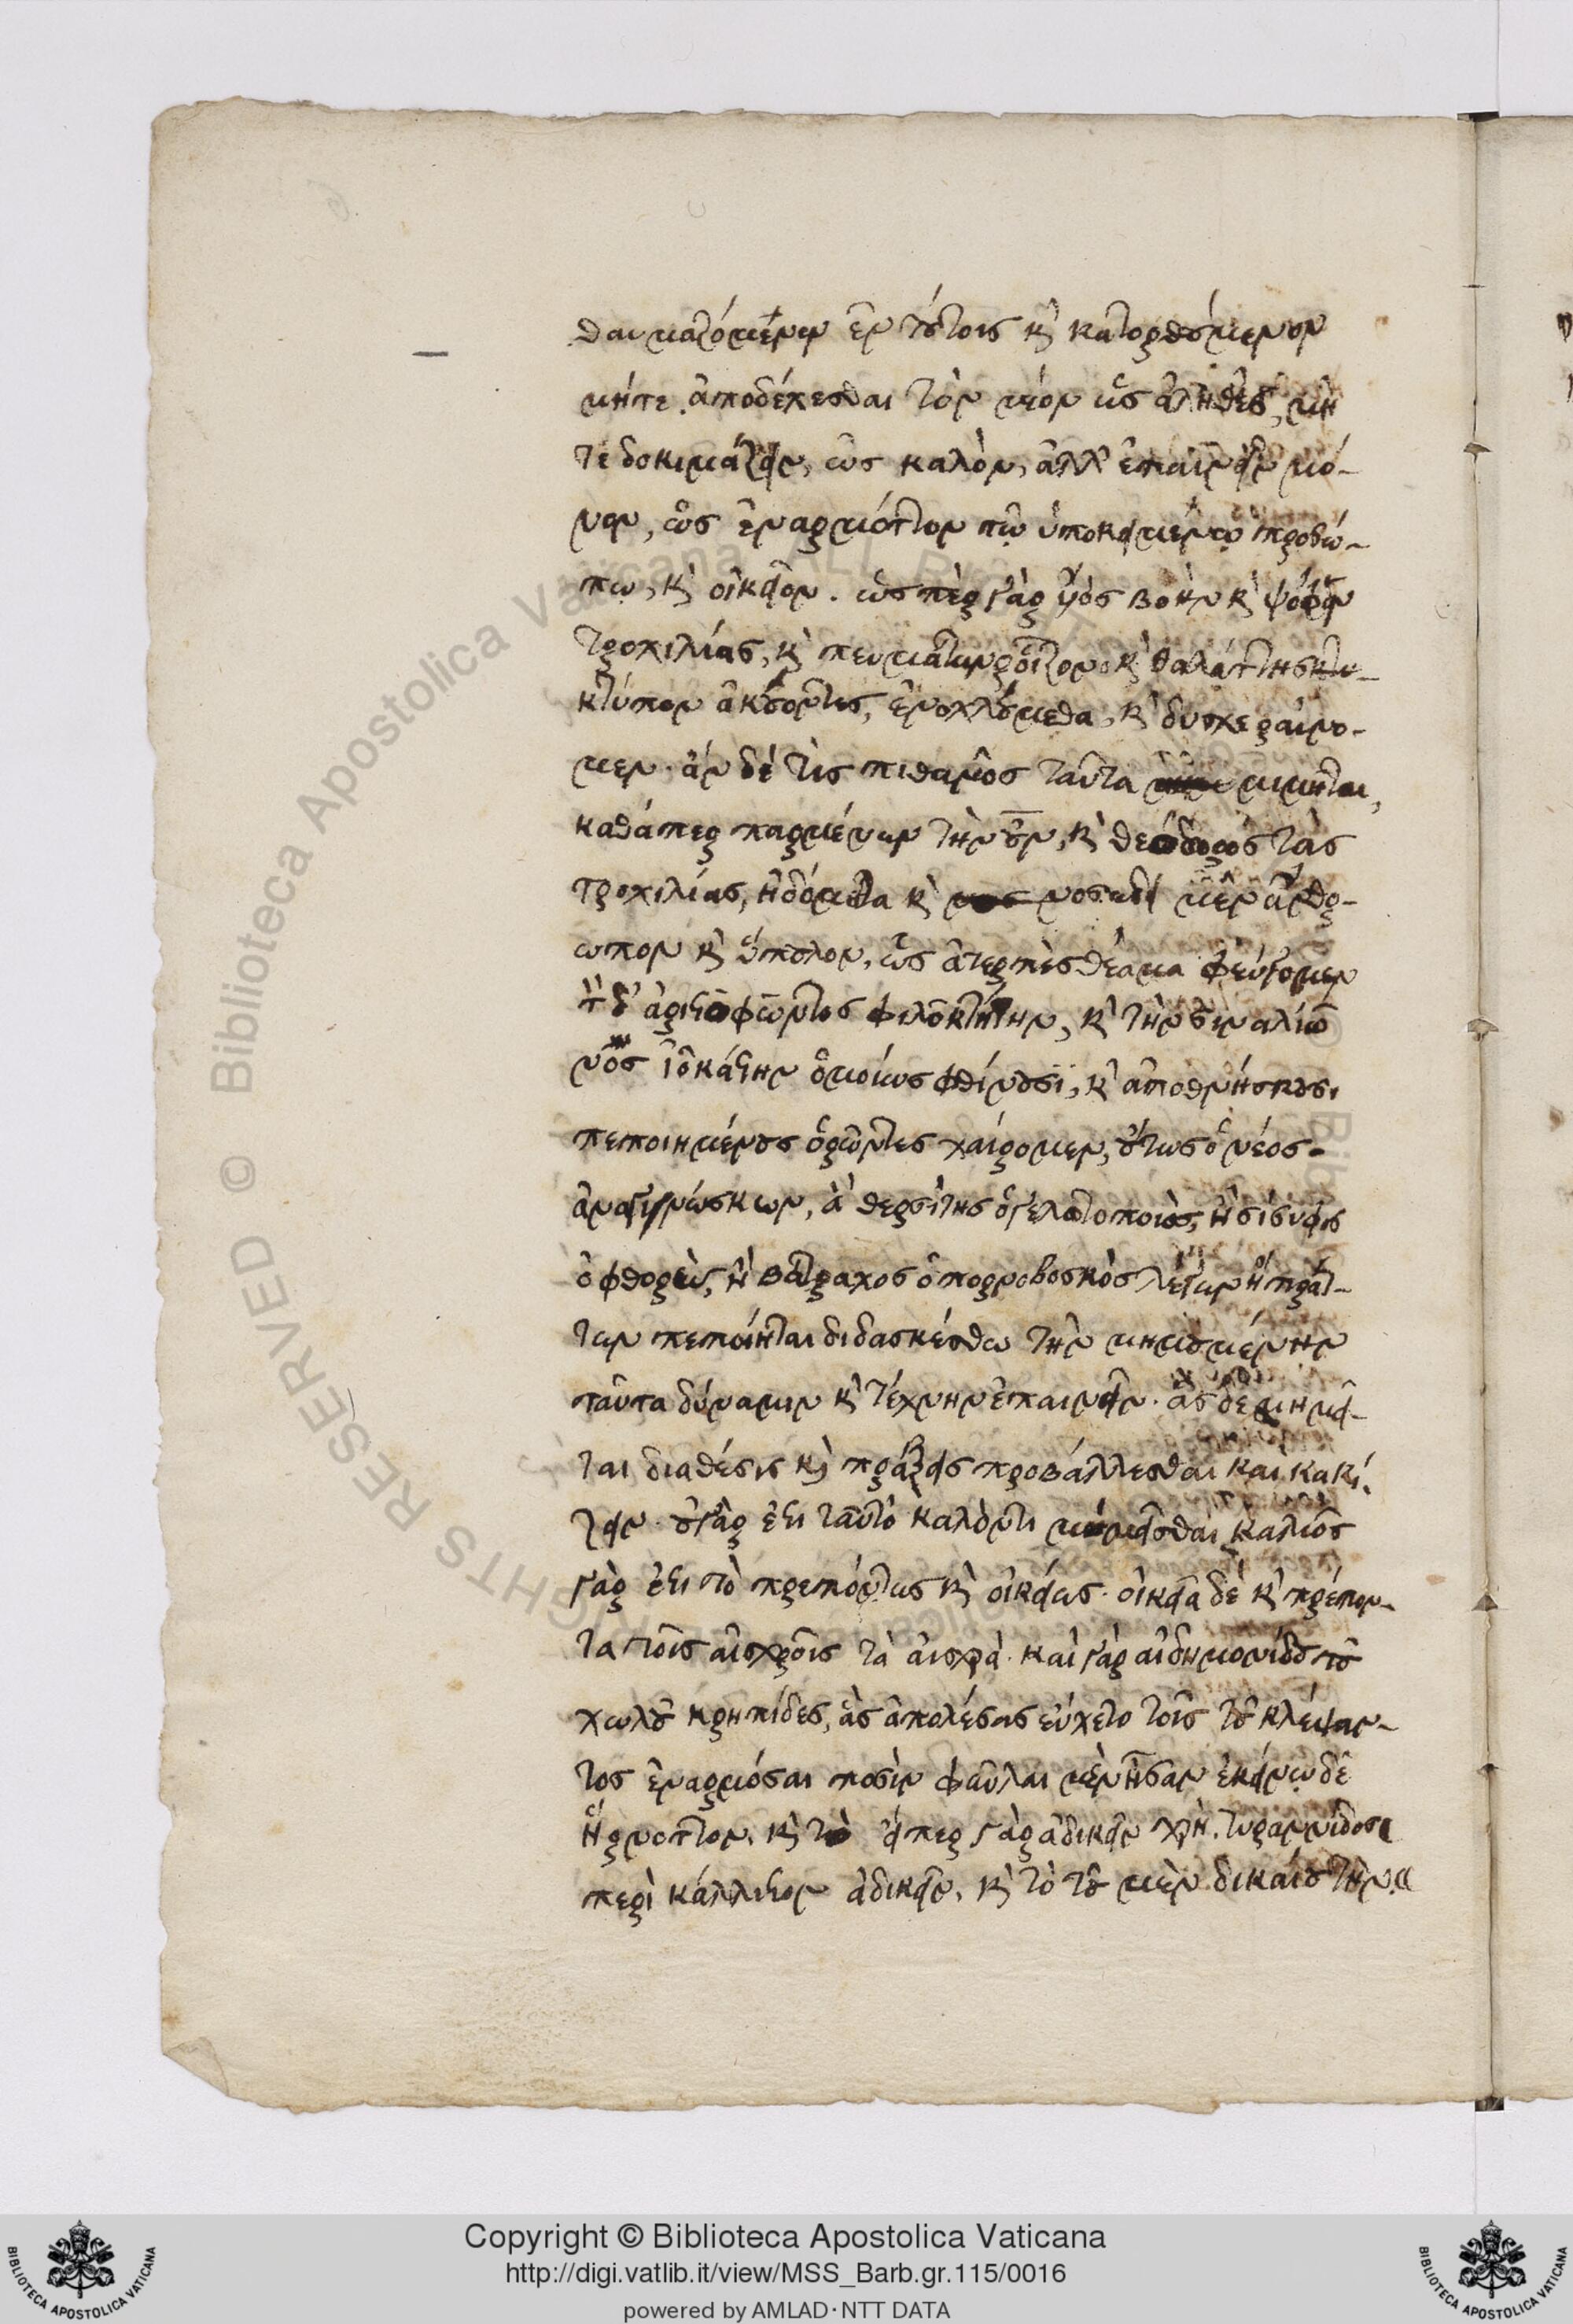 θαυμαζόμενον ἐν τούτοις κὶ κατορθούμενον
μήτε ἀποδέχεσθαι τὸν νέον ὡς ἀληθὲς, μή
τε δοκιμάζειν, ὡς καλὸν, ἀλλ' ἐπαινεῖν μό-
νον, ὡς ἐναρμόττον τῷ ὑποκειμένῳ προσώ-
πῳ, κὶ οἰκεῖον. ὥσπερ γὰρ ὑὸς βοὴν κὶ ψόφον
τροχιλίας, κὶ πνευμάτων ῥοῖζον κὶ θαλάττης κτυ-
κτύπον ἀκούοντες, ἐνοχλούμεθα, κὶ δυσχεραίνο-
μεν. ἂν δέ τις πιθανῶς ταῦτα μιμῆται,
καθάπερ παρμένων τὴν ὗν, κὶ θεόδωρος τὰς
τροχιλίας, ἡδόμεθα κὶ νοσώδη μὲν ἄνθρ-
ωπον κὶ ὕπουλον, ὡς ἀτερπὲς θέαμα φεύγομεν
τὸν δ' ἀριστοφῶντος φιλοκτήτην, κὶ τὴν σιλανίω
νος ἰοκάστην ὁμοίους φθίνουσι, κὶ ἀποθνήσκουσι
πεποιημένους ὁρῶντες χαίρομεν, οὕτως ὁ νέος
ἀναγινώσκων, ἃ θερσίτης ὁ γελωτοποιὸς, ἢ σίσυφος
ὁ φθορεὺς, ἢ βάτραχος ὁ πορνοβοσκὸς λέγων ἢ πράτ-
των πεποίηται διδασκέσθω τὴν μιμουμένην
ταῦτα δύναμιν κὶ τέχνην ἐπαινεῖν. ἃς δὲ μιμεῖ-
ται διαθέσεις κὶ πράξεις προβάλλεσθαι καὶ κακί-
ζειν. οὐ γάρ ἐστι ταυτὸ καλόν τι μιμεῖσθαι καλῶς
γάρ ἐστι τὸ πρεπόντως κὶ οἰκείως. οἰκεῖα δὲ κὶ πρέπον-
τα τοῖς αἰσχροῖς τὰ αἰσχρά. καὶ γὰρ αἱ δημονίδου τοῦ
χωλοῦ κρηπίδες, ἃς ἀπολέσας εὔχετο τοῖς τοῦ κλέψαν-
τος ἐναρμόσαι ποσὶν φαῦλαι μὲν ἦσαν ἐκείνῳ δὲ
ἥρμοττον. κὶ τὸ εἴπερ γὰρ ἀδικεῖν χρὴ. τυραννίδος
περὶ κάλλιστον ἀδικεῖν. κὶ τὸ τοῦ μὲν δικαίου τὴν